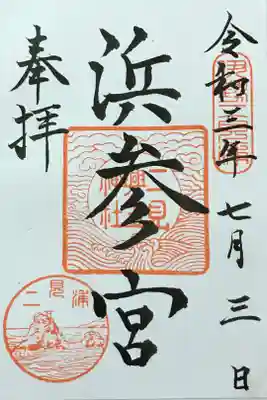 令和三年七月三日
浜参宮
奉拝
二見興玉神社
二見浦